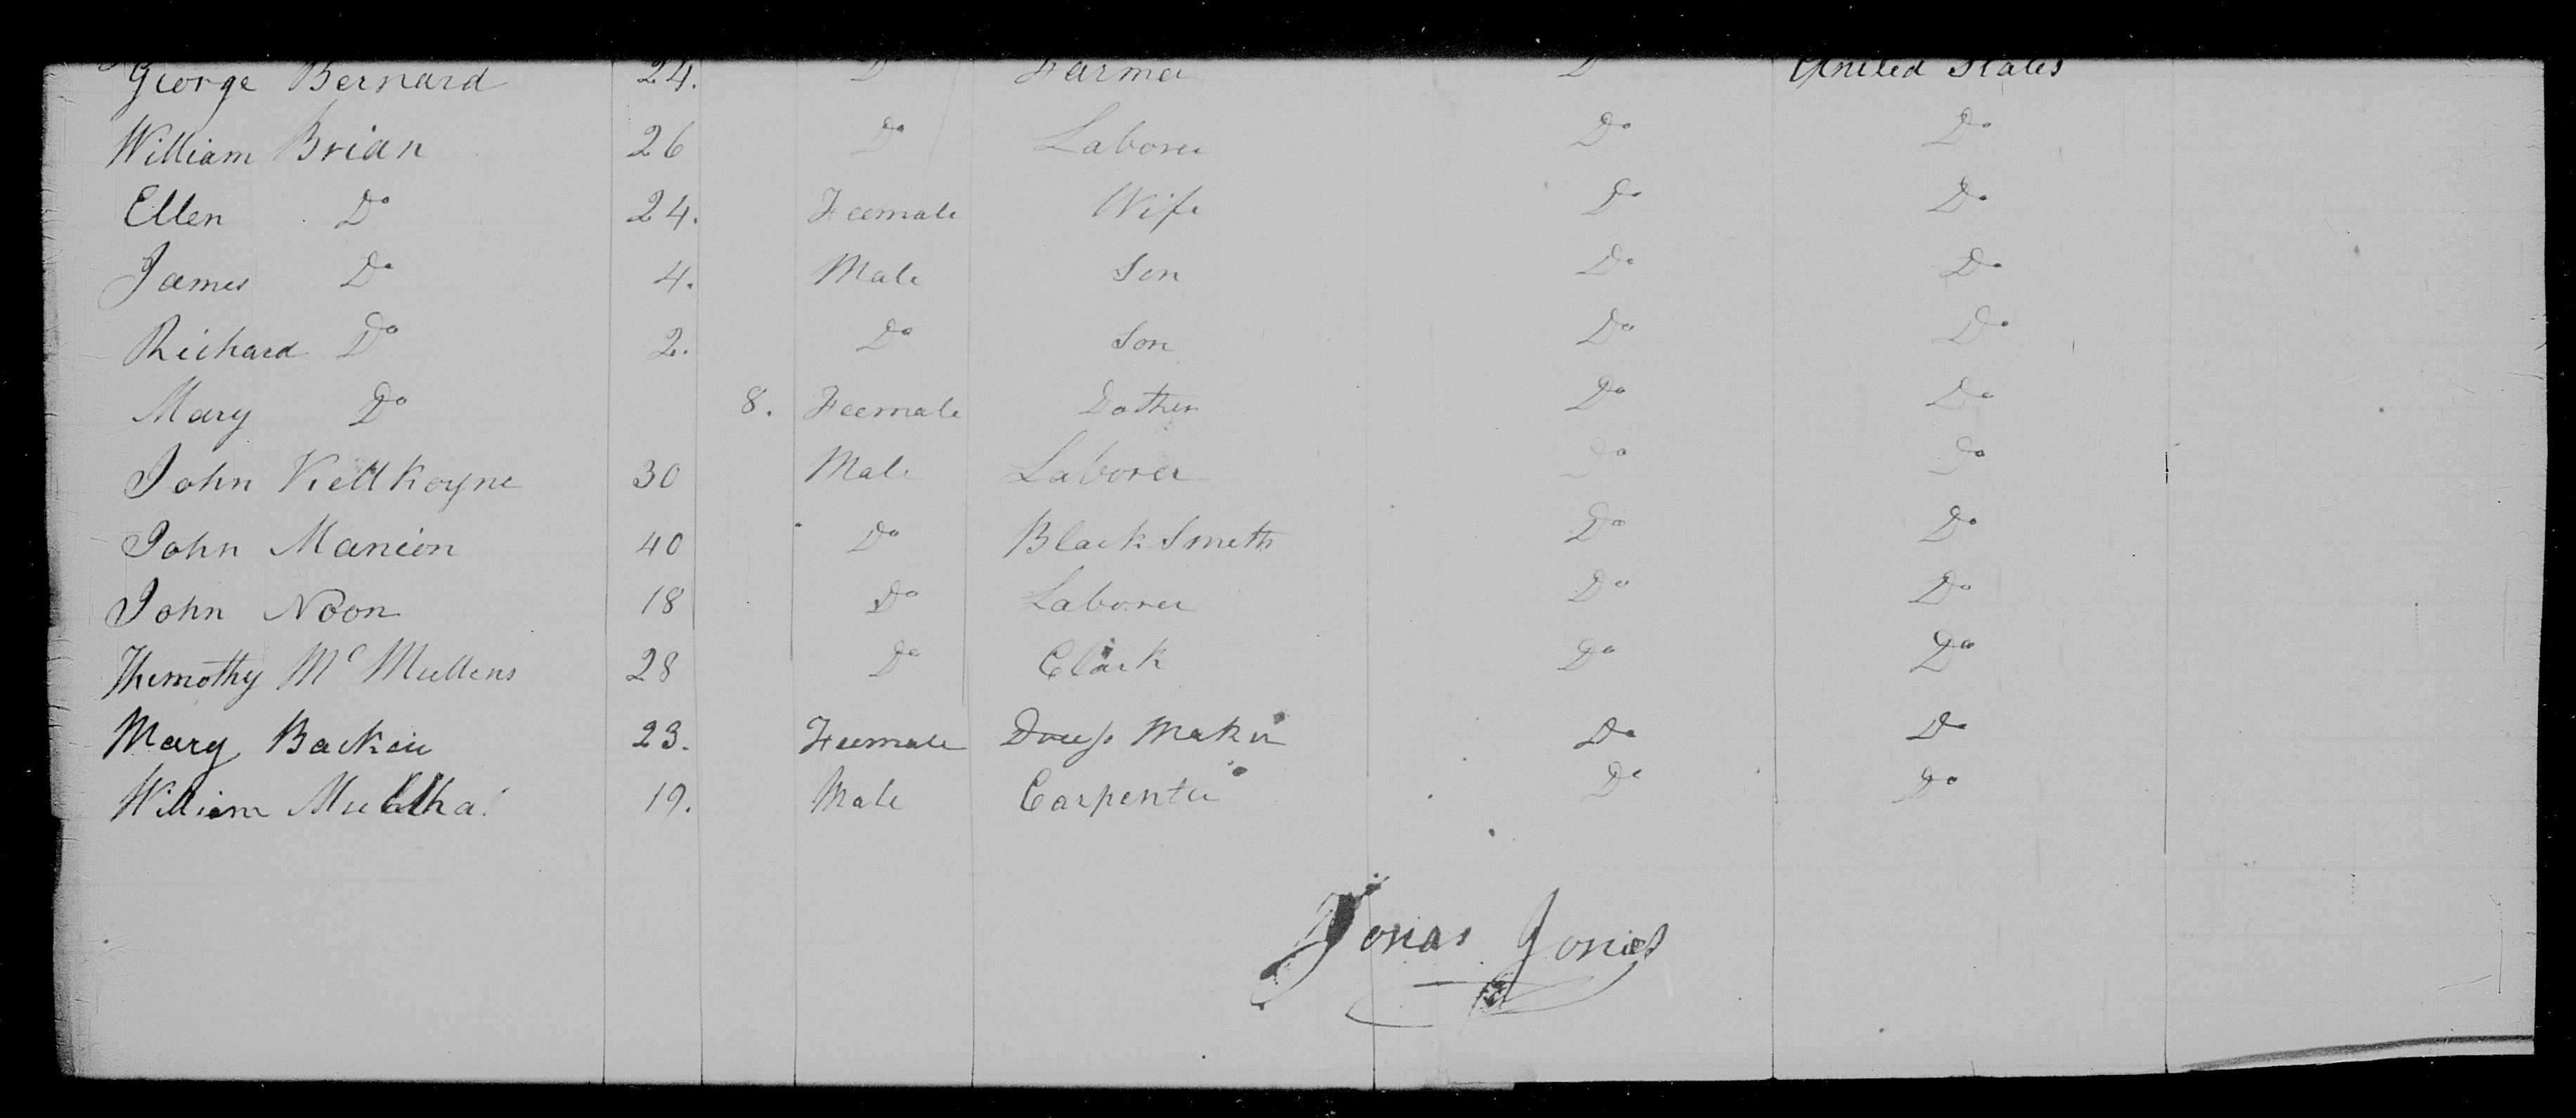 George Bernard 24. Do Farmer Do United States
William Brian 26 Do Laborer Do Do
Ellen Do 24. Feemale Wife Do Do
James Do 4. Male Son Do Do
Richard Do 2. Do Son Do Do
Mary Do 8. Feemale Dother Do Do
John Killkoyne 30 Male Laborer Do Do
John Manion 40 Do Black Smith Do Do
John Noon 18 Do Laborer Do Do
Themothy Mc Mullens 28 Do Clark Do Do
Mary 23. Feemale Maker Do Do
William 19. Male Carpenter Do Do
Jonas Jones